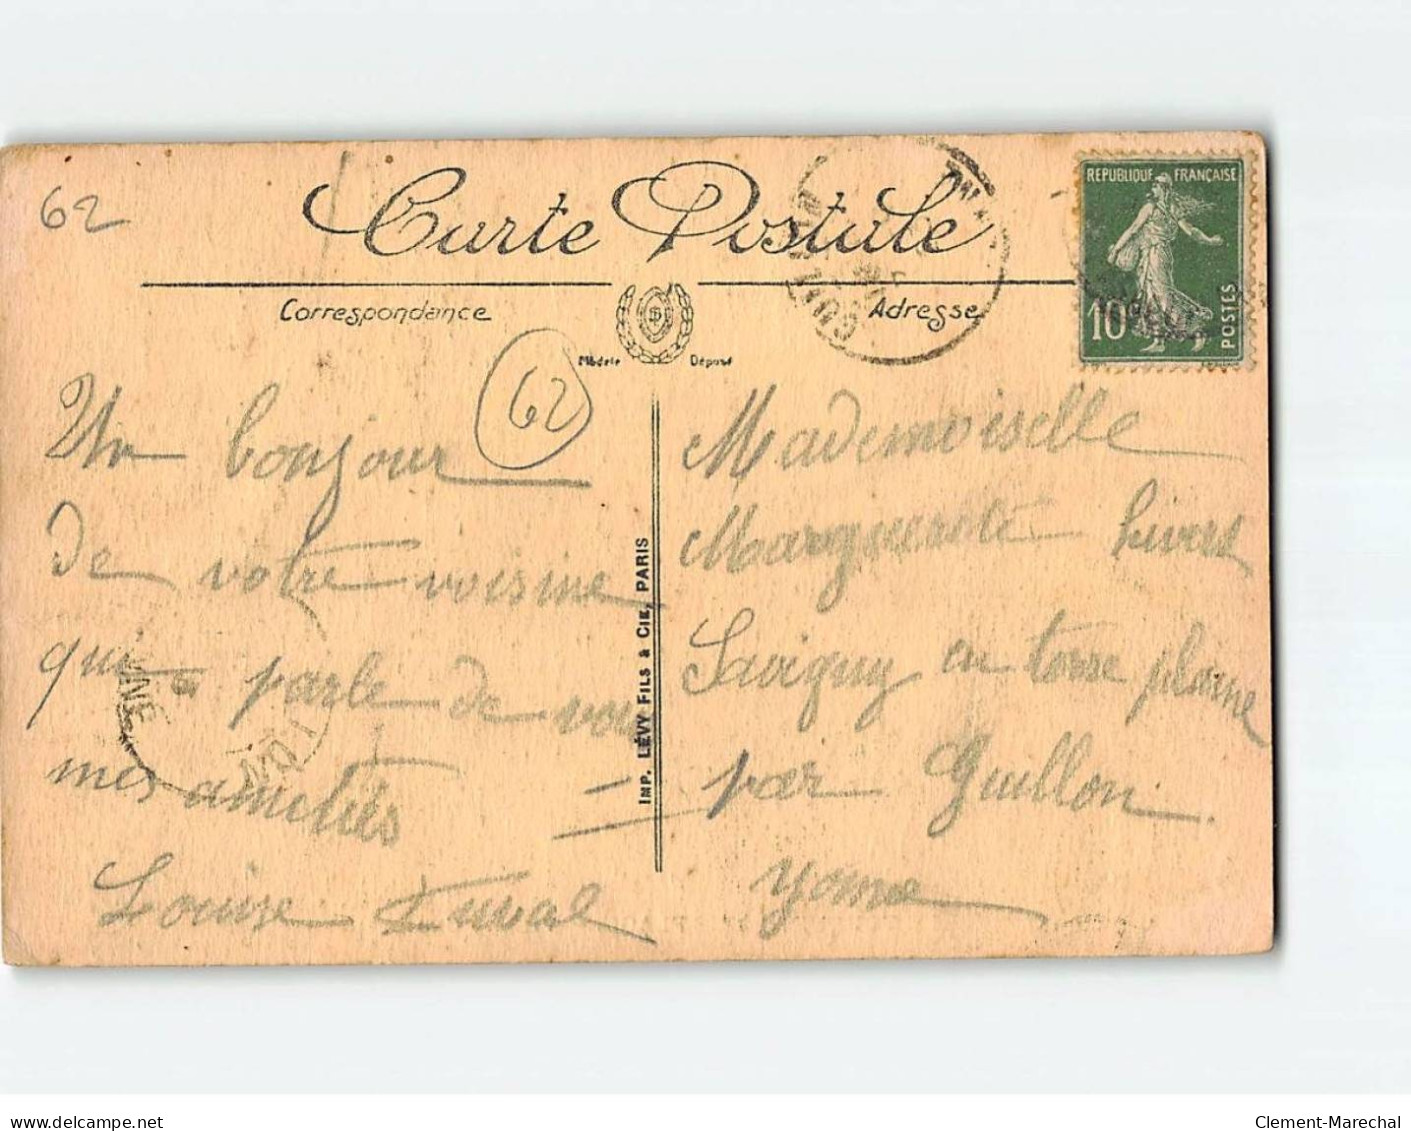 62
Carte Postale
RÉPUBLIQUE FRANÇAISE
10
POSTES
Correspondance
Adresse
Modèle Déposé
62
Un bonjour
de votre voisine
qui parle de vous
mes amitiés
Louise Duval
IMP. LÉVY FILS & CIE, PARIS
Mademoiselle
Marguerite
Savigny en terre plaine
par Guillon
Yonne
delcampe.net
Clement-Marechal